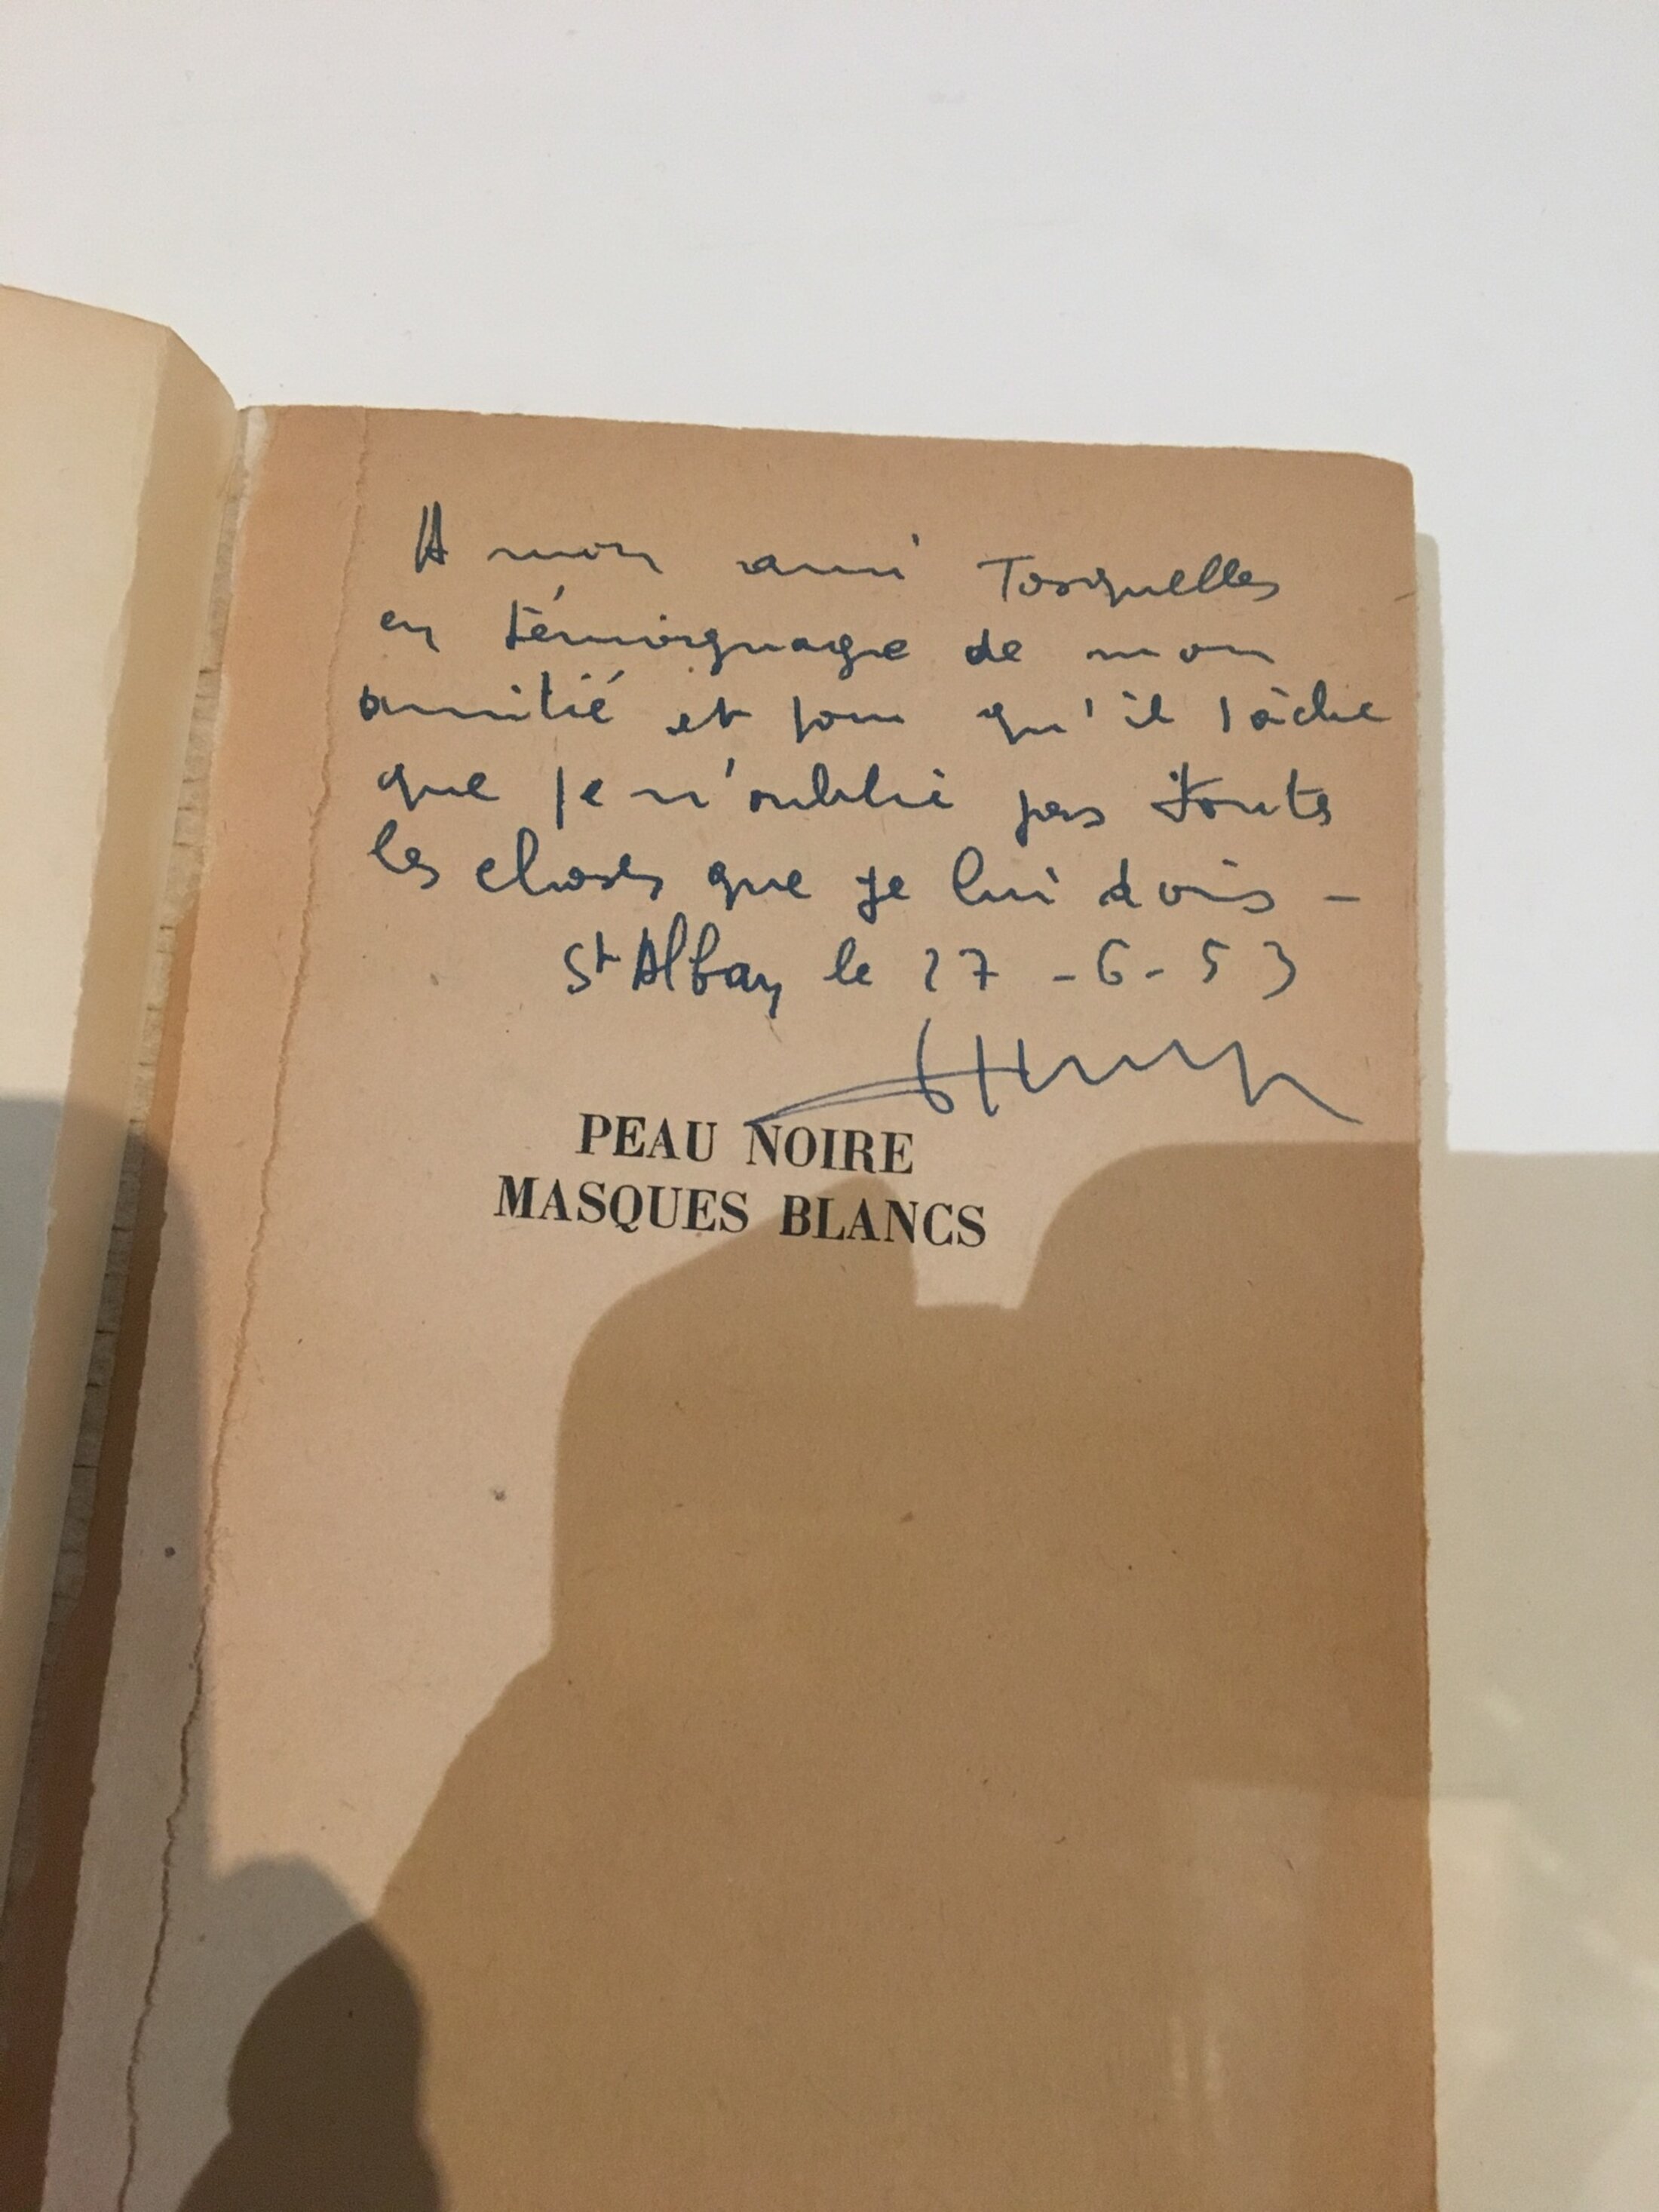 A mon ami Tosquelles
en témoignage de mon
amitié et pour qu'il sache
que je n'oublie pas toutes
les choses que je lui dois –
St Alban le 27 - 6 - 53
PEAU NOIRE
MASQUES BLANCS